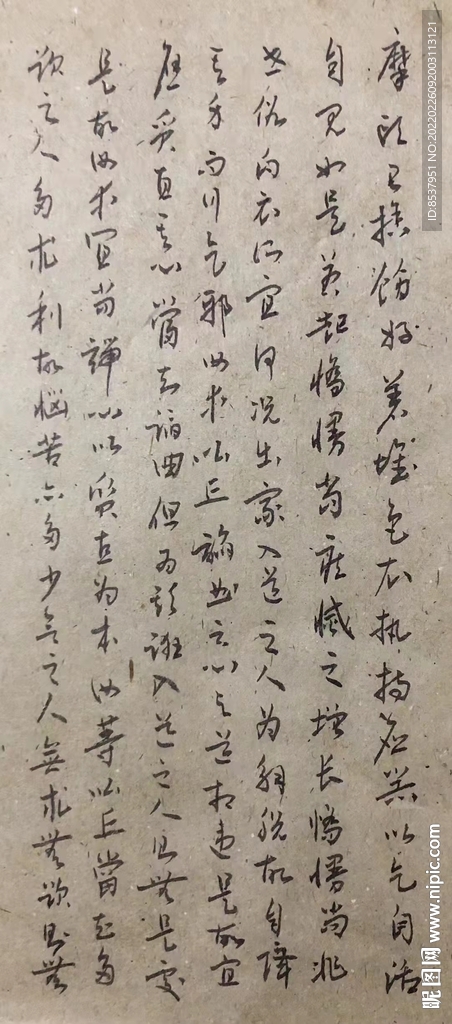 摩頭已捨飾好著壞色衣執持應器以乞自活
自見如是若起憍慢當疾滅之增長憍慢尚非
世俗白衣所宜何況出家入道之人為解脫故自降
其身而行乞耶汝等比丘諂曲之心與道相違是故宜
應質直其心當知諂曲但為欺誑入道之人則無是處
是故汝等宜當端心以質直為本汝等比丘當知多
欲之人多求利故惱苦亦多少欲之人無求無欲則無
ID:8537951 NO:20220226092003113121
昵图网 www.nipic.com